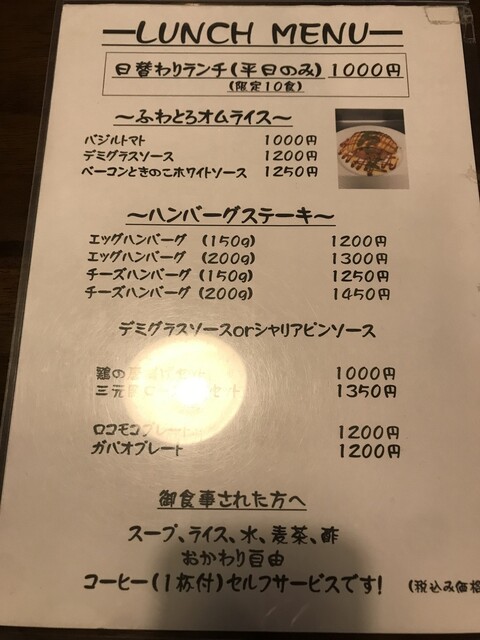 LUNCH MENU
日替わりランチ(平日のみ) 1000円
(限定10食)
～ふわとろオムライス～
バジルトマト 1000円
デミグラスソース 1200円
ベーコンときのこホワイトソース 1250円
～ハンバーグステーキ～
エッグハンバーグ (150g) 1200円
エッグハンバーグ (200g) 1300円
チーズハンバーグ (150g) 1250円
チーズハンバーグ (200g) 1450円
デミグラスソースorシャリアピンソース
鶏の 1000円
三元 セット 1350円
ロコモコプレート 1200円
ガパオプレート 1200円
御食事された方へ
スープ、ライス、水、麦茶、酢
おかわり自由
コーヒー(1杯付)セルフサービスです!
(税込み価格